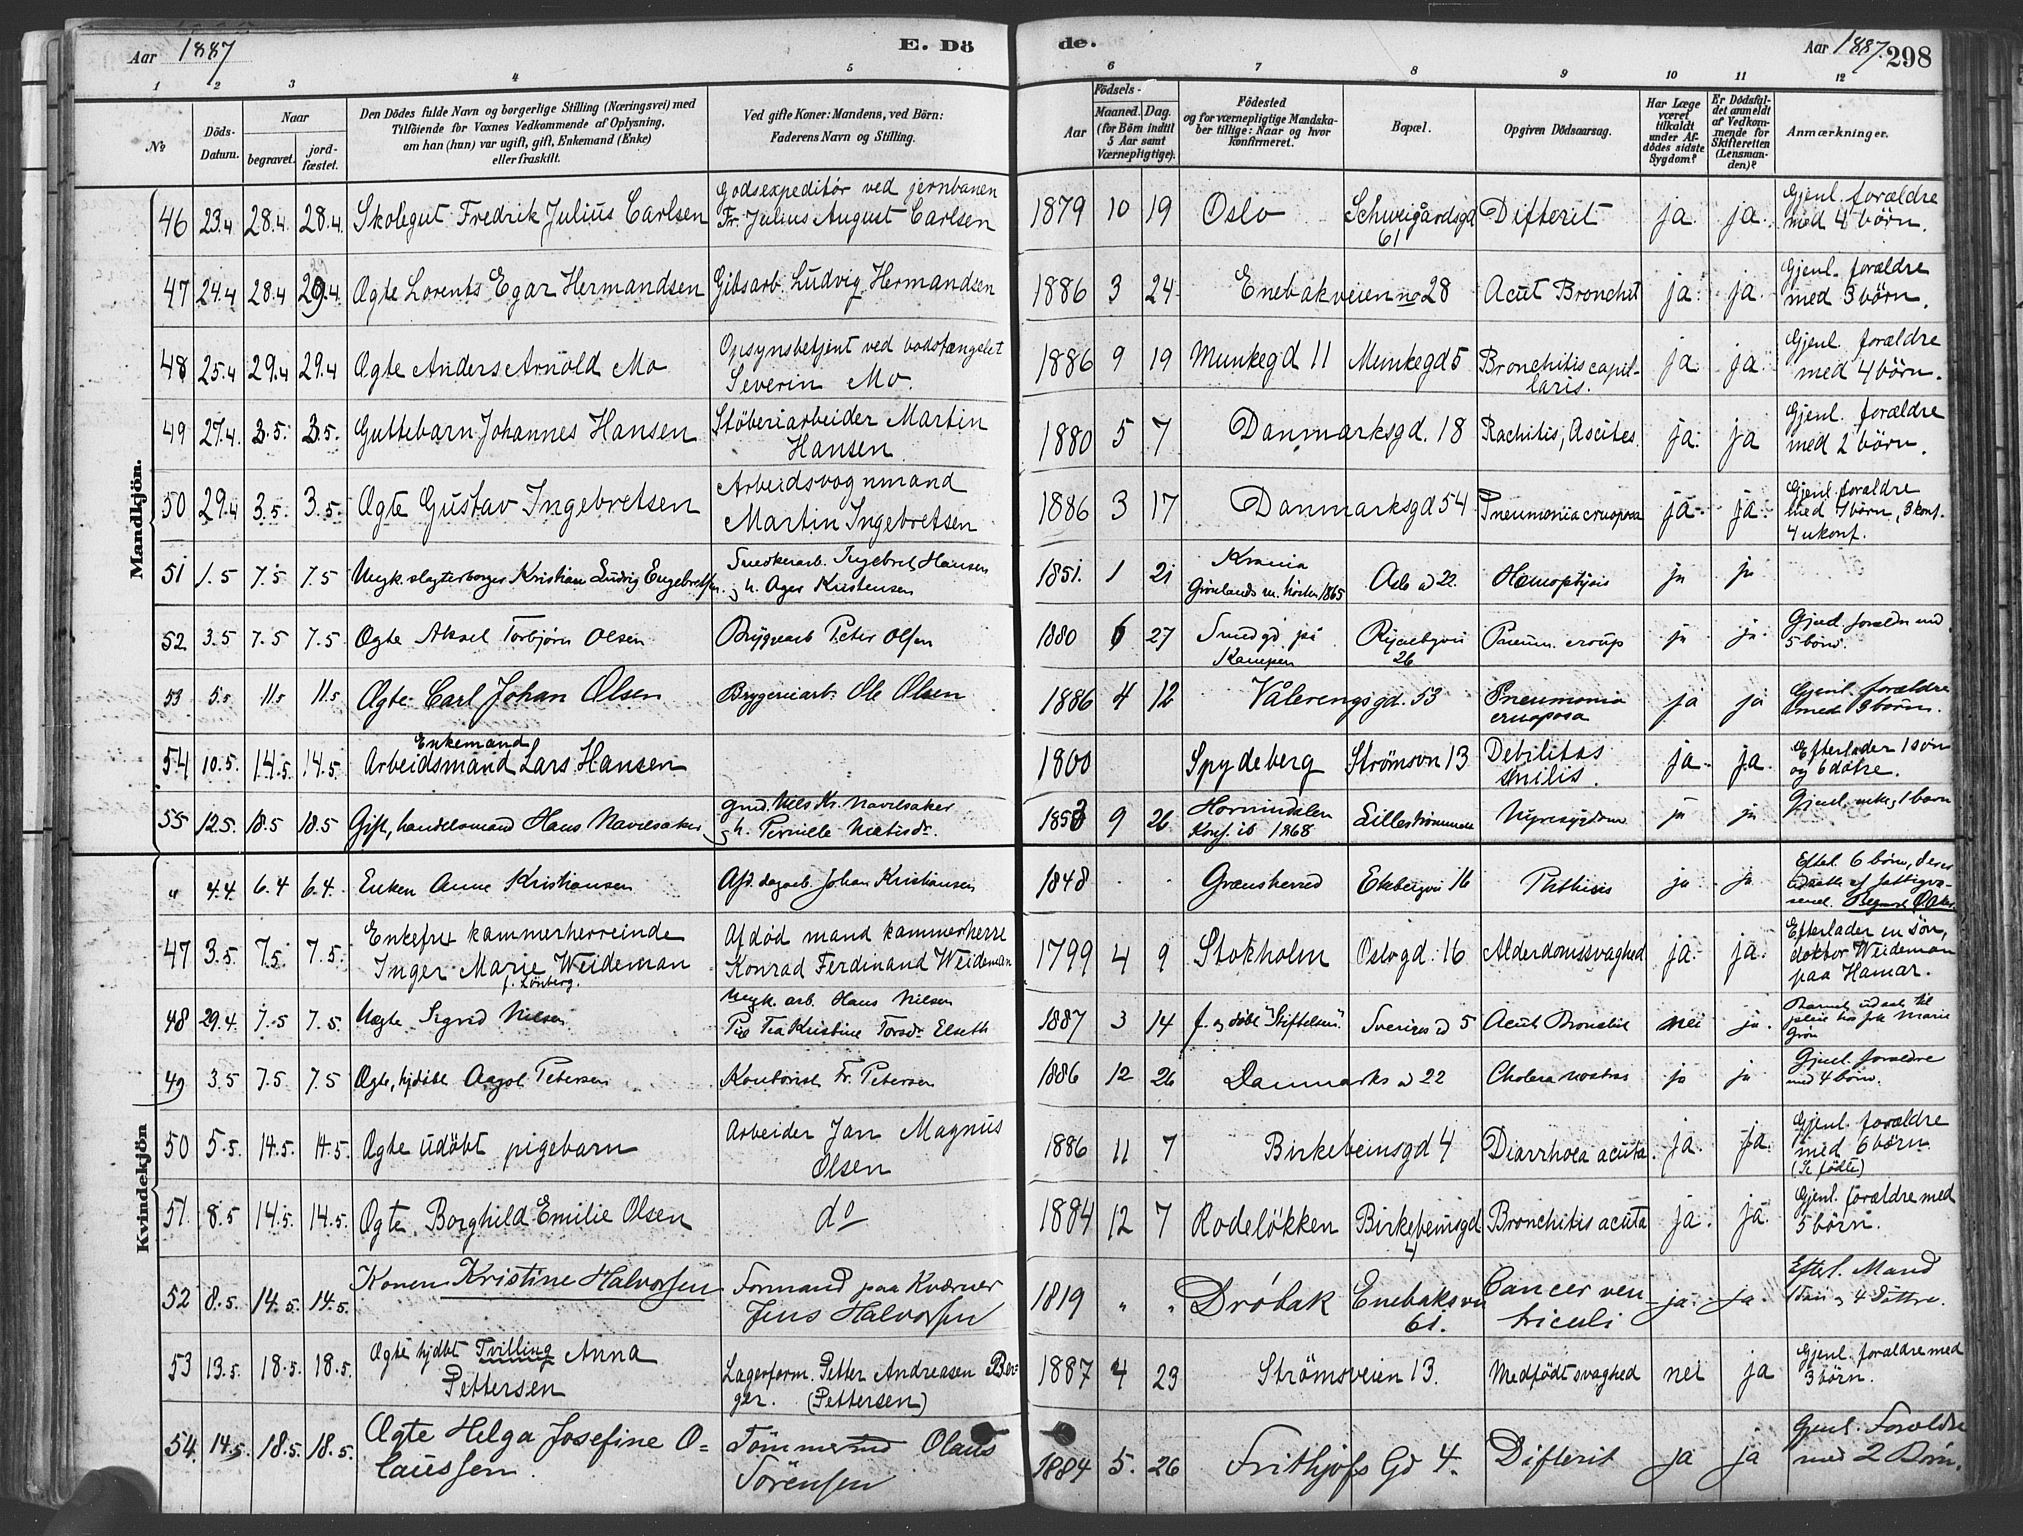 Aar 1887
E. Dö
de.
Aar 1887.
298
1 2 3 4 5 6 7 8 9 10 11 12
No
Döds-Datum.
Naar
begravet.
jord-fæstet.
Den Dödes fulde Navn og borgerlige Stilling (Næringsvei) med
Tilföiende for Voxnes Vedkommende af Oplysning,
om han (hun) var ugift, gift, Enkemand (Enke)
eller fraskilt.
Ved gifte Koner: Mandens, ved Börn:
Faderens Navn og Stilling.
Födsels-
Aar
Maaned. Dag.
(for Börn indtil
5 Aar samt
Værnepligtige).
Födested
og for værnepligtige Mandska-
ber tillige: Naar og hvor
konfirmeret.
Bopæl.
Opgiven Dödsaarsag.
Har Læge
været
tilkaldt
under Af-
dödes sidste
Sygdom?
Er Dödsfal-
det anmeldt
af Vedkom-
mende for
Skifteretten
(Lensman-
den)?
Anmærkninger.
Mandkjön.
46 23.4 28.4 28.4 Skolegut Fredrik Julius Carlsen Godsexpeditör ved jernbanen Fr. Julius August Carlsen 1879 10 19 Oslo Schweigårdsgd 61 Difterit ja ja Gjenl. forældre med 4 börn.
47 24.4 28.4 29.4 Ægte Lorents Egar Hermandsen Gibsarb. Ludvig Hermandsen 1886 3 24 Enebakveien no 28 Acut Bronchit ja ja Gjenl. forældre med 3 börn.
48 25.4 29.4 29.4 Ægte Anders Arnold Mo Opsynsbetjent ved bodsfængslet Severin Mo. 1886 9 19 Munkegd 11 Munkegd 5 Bronchitis capil-laris. ja ja Gjenl. forældre med 4 börn.
49 27.4. 3.5. 3.5. Guttebarn Johannes Hansen Stöberiarbeider Martin Hansen 1880 5 7 Danmarksgd. 18 Rachitis, Ascites ja ja Gjenl. forældre med 2 börn.
50 29.4 3.5. 3.5. Ægte Gustav Ingebretsen Arbeidsvognmand Martin Ingebretsen 1886 3 17 Danmarksgd 54 Pneumonia cruoposa ja ja Gjenl. forældre med 1 börn, 3 konf. 4 ukonf.
51 1.5 7.5 7.5 Ungk. slagterborger Kristian Ludvig Engebretsen Snedkerarb. Ingebret Hansen h. Kristensen 1851. 1 21 Krania Grønlands m. hösten 1865 Oslo 22 Hæmoptysis ja ja
52 3.5 7.5 7.5 Ægte Aksel Torbjörn Olsen Bryggearb Peter Olsen 1880 6 27 Smedgd på Kampen 26 Pneum. croup ja ja Gjenl. forældre med 5 börn.
53 5.5 11.5 11.5 Ægte Carl Johan Olsen Bryggeriarb. Ole Olsen 1886 4 12 Vålerengsgd. 53 Pneumonia cruoposa ja ja Gjenl. forældre med 3 börn.
54 10.5. 14.5. 14.5. Enkemand Arbeidsmand Lars Hansen 1800 Spydeberg Strömsvn 13 Debilitas senilis. ja ja Efterlader 1 sön og 6 dötre.
55 12.5. 18.5 18.5 Gift, handelsmand Hans Navelsaker Nils Kr. Navelsaker h. Pernille 1853 9 26 Hornindalen Konf. ib 1868 Lilleströmmen Nyresygdom ja ja Gjenl. enke, 1 barn
Kvindekjön
" 4.4. 6.4 6.4. Enken Anne Kristiansen Afd. dagarb. Johan Kristiansen 1848 Grænsherred Ekebergvn 16 Phthisis ja ja Efterl. 6 börn,
47 3.5. 7.5 7.5. Enkefru kammerherreinde Inger Marie Weideman f. Lönberg. Afdöd mand kammerherre Konrad Ferdinand Weideman 1799 4 9 Stokholm Oslogd. 16 Alderdomssvaghed ja ja Efterlader en sön, doktor Weideman paa Hamar.
48 29.4. 7.5 7.5. Uægte Sigrid Nielsen Ungk. arb. Hans Nielsen Pige Tea Kristine Elseth 1887 3 14 f. og döbt "Stiftelsen". 5 Acut Bronchit nei ja
49 3.5 7.5 7.5 Ægte, hjdöbt Aagot Petersen Kontorist Fr. Petersen 1886 12 26 Danmarks 22 Cholera nostras ja ja Gjenl. forældre med 4 börn.
50 5.5. 14.5. 14.5. Ægte udöbt pigebarn Arbeider Jan Magnus Olsen 1886 11 7 Birkebeinsgd 4 Diarrhoea acuta ja ja Gjenl. forældre med 6 börn.
51. 8.5 14.5. 14.5. Ægte Borghild Emilie Olsen do 1884 12 7 Rodelökken Birkebeinsgd 4 Bronchitis acuta ja ja Gjenl. forældre med 5 börn.
52 8.5. 14.5. 14.5. Konen Kristine Halvorsen Formand paa Kværner Jens Halvorsen 1819 " " Dröbak Enebaksvn 61. Cancer ven-triculi ja ja Efterl. Mand 4 Döttre.
53 13.5. 18.5 18.5. Ægte hjdbt Tvilling Anna Pettersen Lagerform. Petter Andreasen Ber-ger. (Pettersen) 1887 4 23 Strömsveien 13. Medfödt svaghed nei ja Gjenl. forældre med 3 börn.
54. 14.5. 18.5. 18.5. Ægte Helga Josefine O-laussen. Tömmermd Olaus Sörensen 1884 5. 26 Frithjofs Gd 4. Difterit ja ja Gjenl. Forældre med 2 Börn.